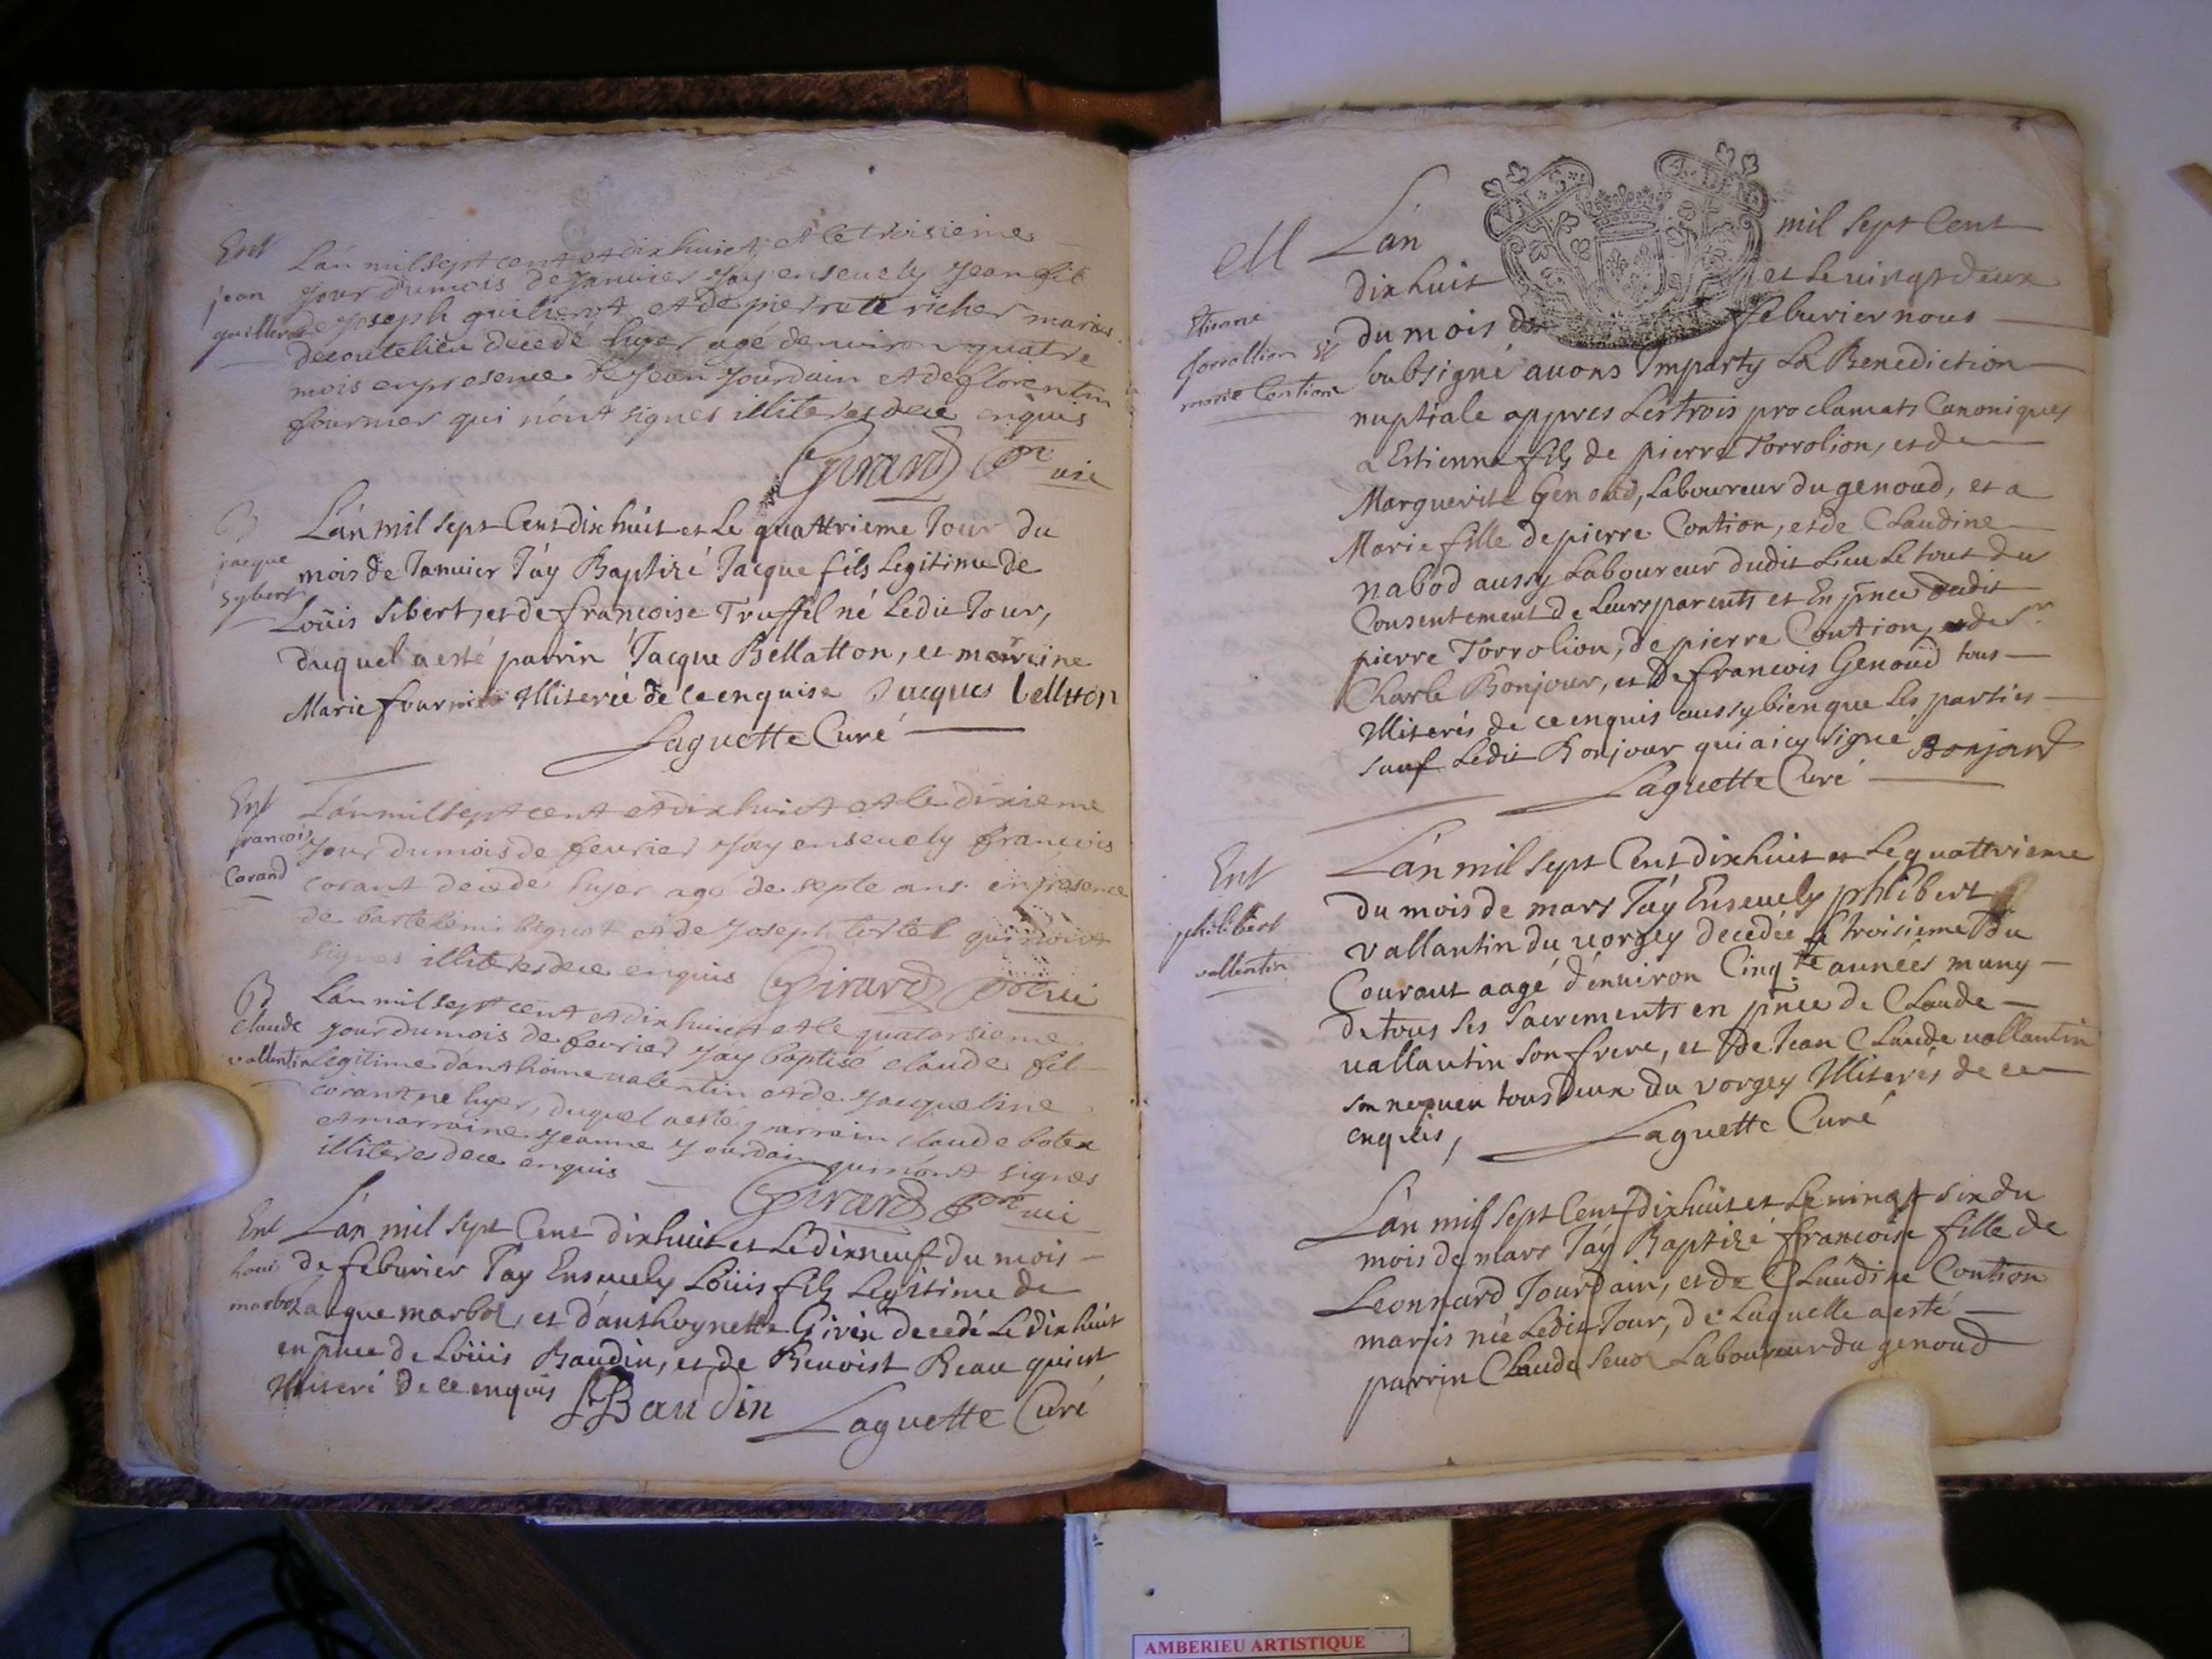 Ent
jean
guillerot
Lán mil sept cent et dix huict, et le troisieme
jour du mois de Janvier jay ensevely jean fils
de joseph guilierot et de pierrete richer maries
de coutelieu decedé hyer agé denviron quatre
mois en presence de jean jourdain et de florentin
fournier qui n'ont signes illiteres de ce enquis
Girard pre vic
B
jacque
sybert
Lán mil sept Cent dix huit et Le quattrieme Jour du
mois de Janvier J'áy Baptizé Jacque fils Legitime de
Loüis Sibert, et de francoise Truffil né Ledit Jour,
duquel a esté parrin Jacque Bellatton, et marreine
Marie fournier Illiterée de ce enquise Jacques bellton
Laguette Curé
Ent
francois
Corand
Lán mil sept cent et dix huict et le dixieme
jour du mois de fevrier jay ensevely francois
corant decedé hyer agé de septe ans en presence
de bartelemi biguot et de joseph tertel qui n'ont
signes illiteres de ce enquis Girard pre vic
B
Claude
vallentin
Lán mil sept cent et dix huict et le quatorsieme
jour du mois de fevrier jay baptisé claude fil
legitime d'anthoine valentin et de jacqueline
corant né hyer, duquel a esté parrain claude botex
et marraine jeanne jourdain qui n'ont signes
illiteres de ce enquis
Girard pre vic
Ent
Louis
marbox
Lán mil sept Cent dix huit et Le dix neuf du mois
de feburier J'ay Ensevely Loüis fils Legitime de
Jacque marbox, et d'anthoynette Girin decedé Le dix huit
en pnce de Loüis Baudin, et de Benoist Beau qui est
Illiteré de ce enquis LBaudin Laguette Curé
M
Etienne
forrollion et
marie Contion
Lán mil sept Cent
dix huit et le vingt deux
du mois de feburier nous
soubsigné avons Imparty La Benediction
nuptiale appres Les trois proclamats Canoniques
a Estienne fils de pierre Torrolion, et de
Marguerite Genoud, Laboureur du genoud, et a
Marie fille de pierre Contion, et de Claudine
nabod aussy Laboureur dudit Lieu Le tout du
Consentement de Leurs parents et En pnce dudit
pierre Torrolion, de pierre Contion, et de Sr
Charle Bonjour, et De francois Genoud tous
Illiterés de ce enquis aussy bien que Les parties
sauf Ledit Bonjour qui a icy signé Bonjour
Laguette Curé
Ent
philibert
vallentin
Lán mil sept Cent dix huit et Le quattrieme
du mois de mars J'áy Ensevely philibert
vallantin du vorgey decedée le troisieme du
Courant aagé d'environ Cinqte années muny
de tous ses sacrements en pnce de Claude
vallantin son frere, et de Jean Claude vallantin
son nepveu tous Deux du vorgey Illiterés de ce
enquis, Laguette Curé
Lán mil sept Cent dix huit et Le vingt six du
mois de mars J'áy Baptizé francoise fille de
Leonnard Jourdain, et de Claudine Contion
mariés née Ledit Jour, de Laquelle a esté
parrin Claude Laboureur du genoud
AMBERIEU ARTISTIQUE